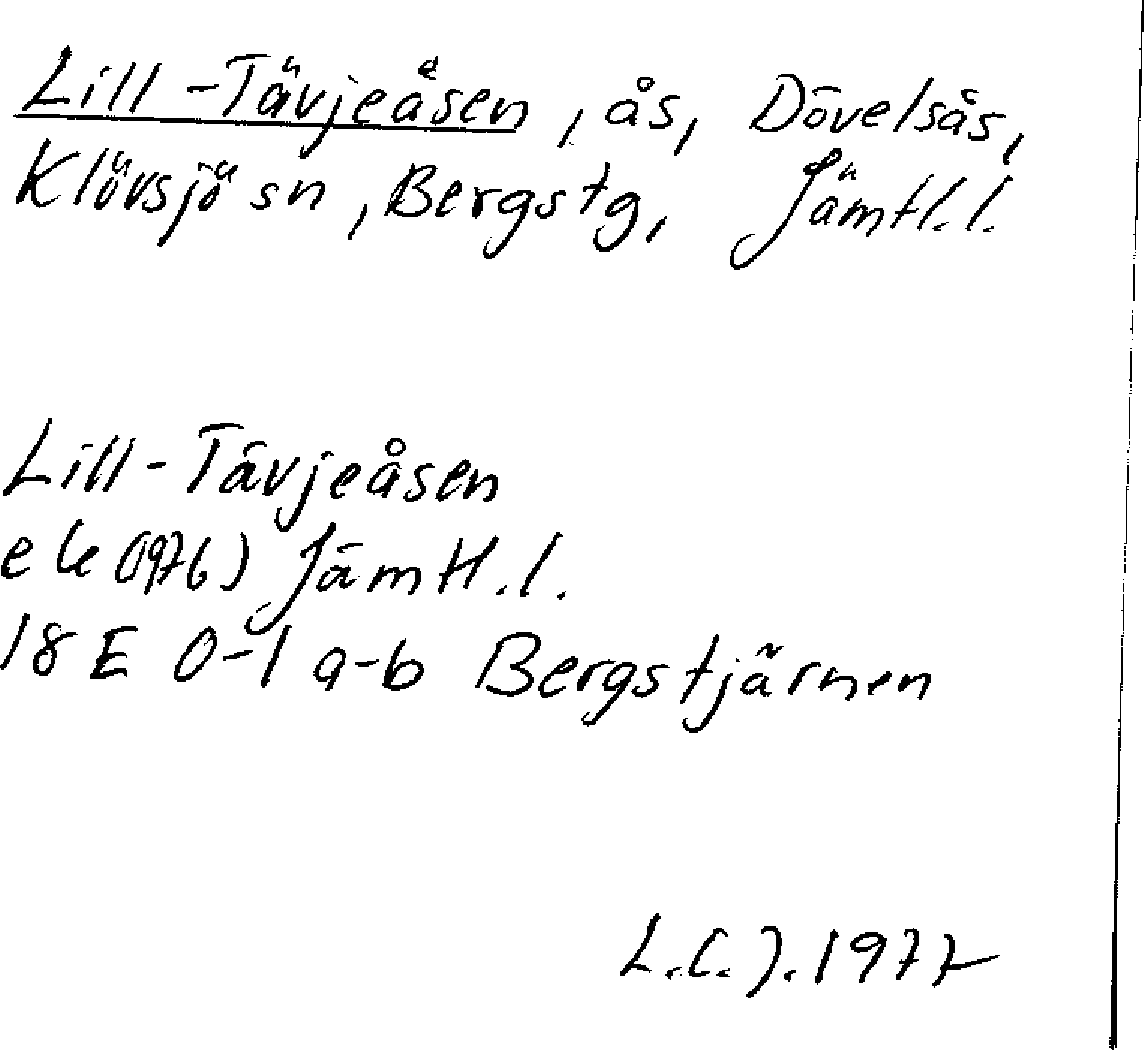 Lill-Tävjeåsen, ås, Dövelsås,
Klövsjö sn, Bergs tg, Jämtl. l.
Lill-Tävjeåsen
ek (1976) Jämtl. l.
18 E 0-1 a-b Bergstjärnen
L.C.J. 1977